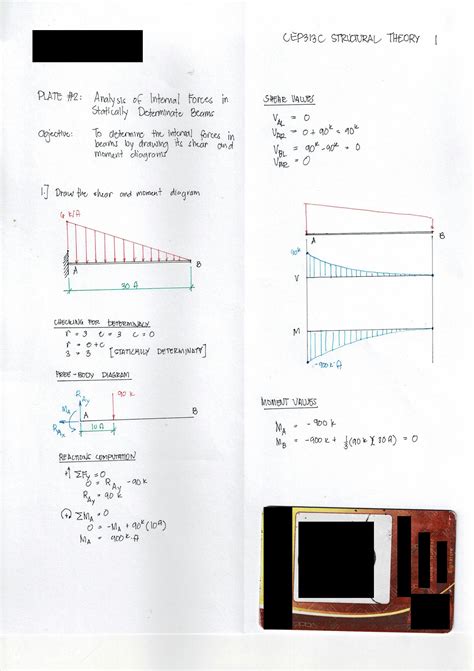 CEP313C STRUCTURAL THEORY 1
PLATE #2: Analysis of Internal Forces in
Statically Determinate Beams
Objective: To determine the internal forces in
beams by drawing its shear and
moment diagrams
1.] Draw the shear and moment diagram
6 k/ft
A
B
30 ft
CHECKING FOR DETERMINACY
r = 3 e = 3 c = 0
r = e + c
3 = 3 [STATICALLY DETERMINATE]
FREE-BODY DIAGRAM
RAy
90 k
MA
A
B
RAx
10 ft
REACTIONS COMPUTATION
+↑ ΣFy = 0
0 = RAy - 90k
RAy = 90 k
ΣMA = 0
0 = -MA + 90k (10ft)
MA = 900 k·ft
SHEAR VALUES
VAL = 0
VAR = 0 + 90k = 90k
VBL = 90k - 90k = 0
VBR = 0
A
B
90k
V
M
-900 k·ft
MOMENT VALUES
MA = -900 k
MB = -900 k + 1/3 (90 k)(30 ft) = 0